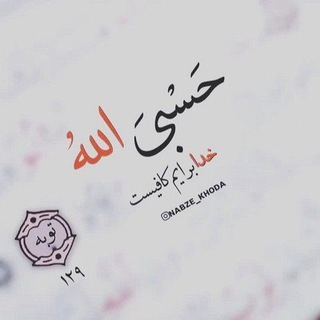 حَسْبِیَ اللهُ
خدا برایم کافیست
©NABZE_KHODA
توبه
۱۲۹